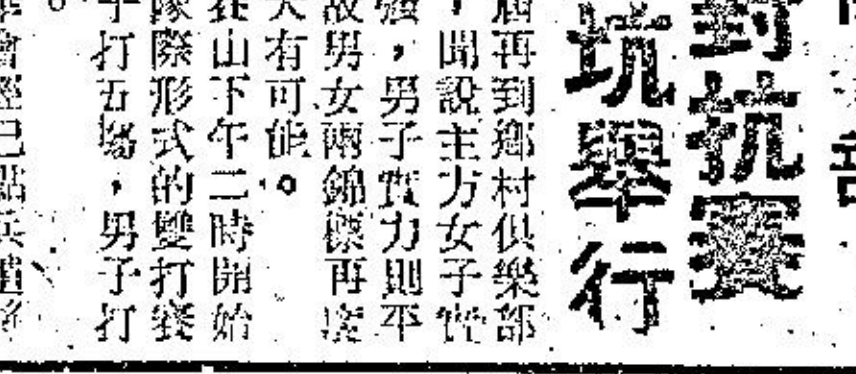 對抗賽
坑舉行
屆再到鄉村俱樂部
，聞說主方女子實
強，男子實力則平
故男女兩錦標再度
大有可能。
在山下午二時開始
隊際形式的雙打賽
子打五場，男子打
。
會經已點兵